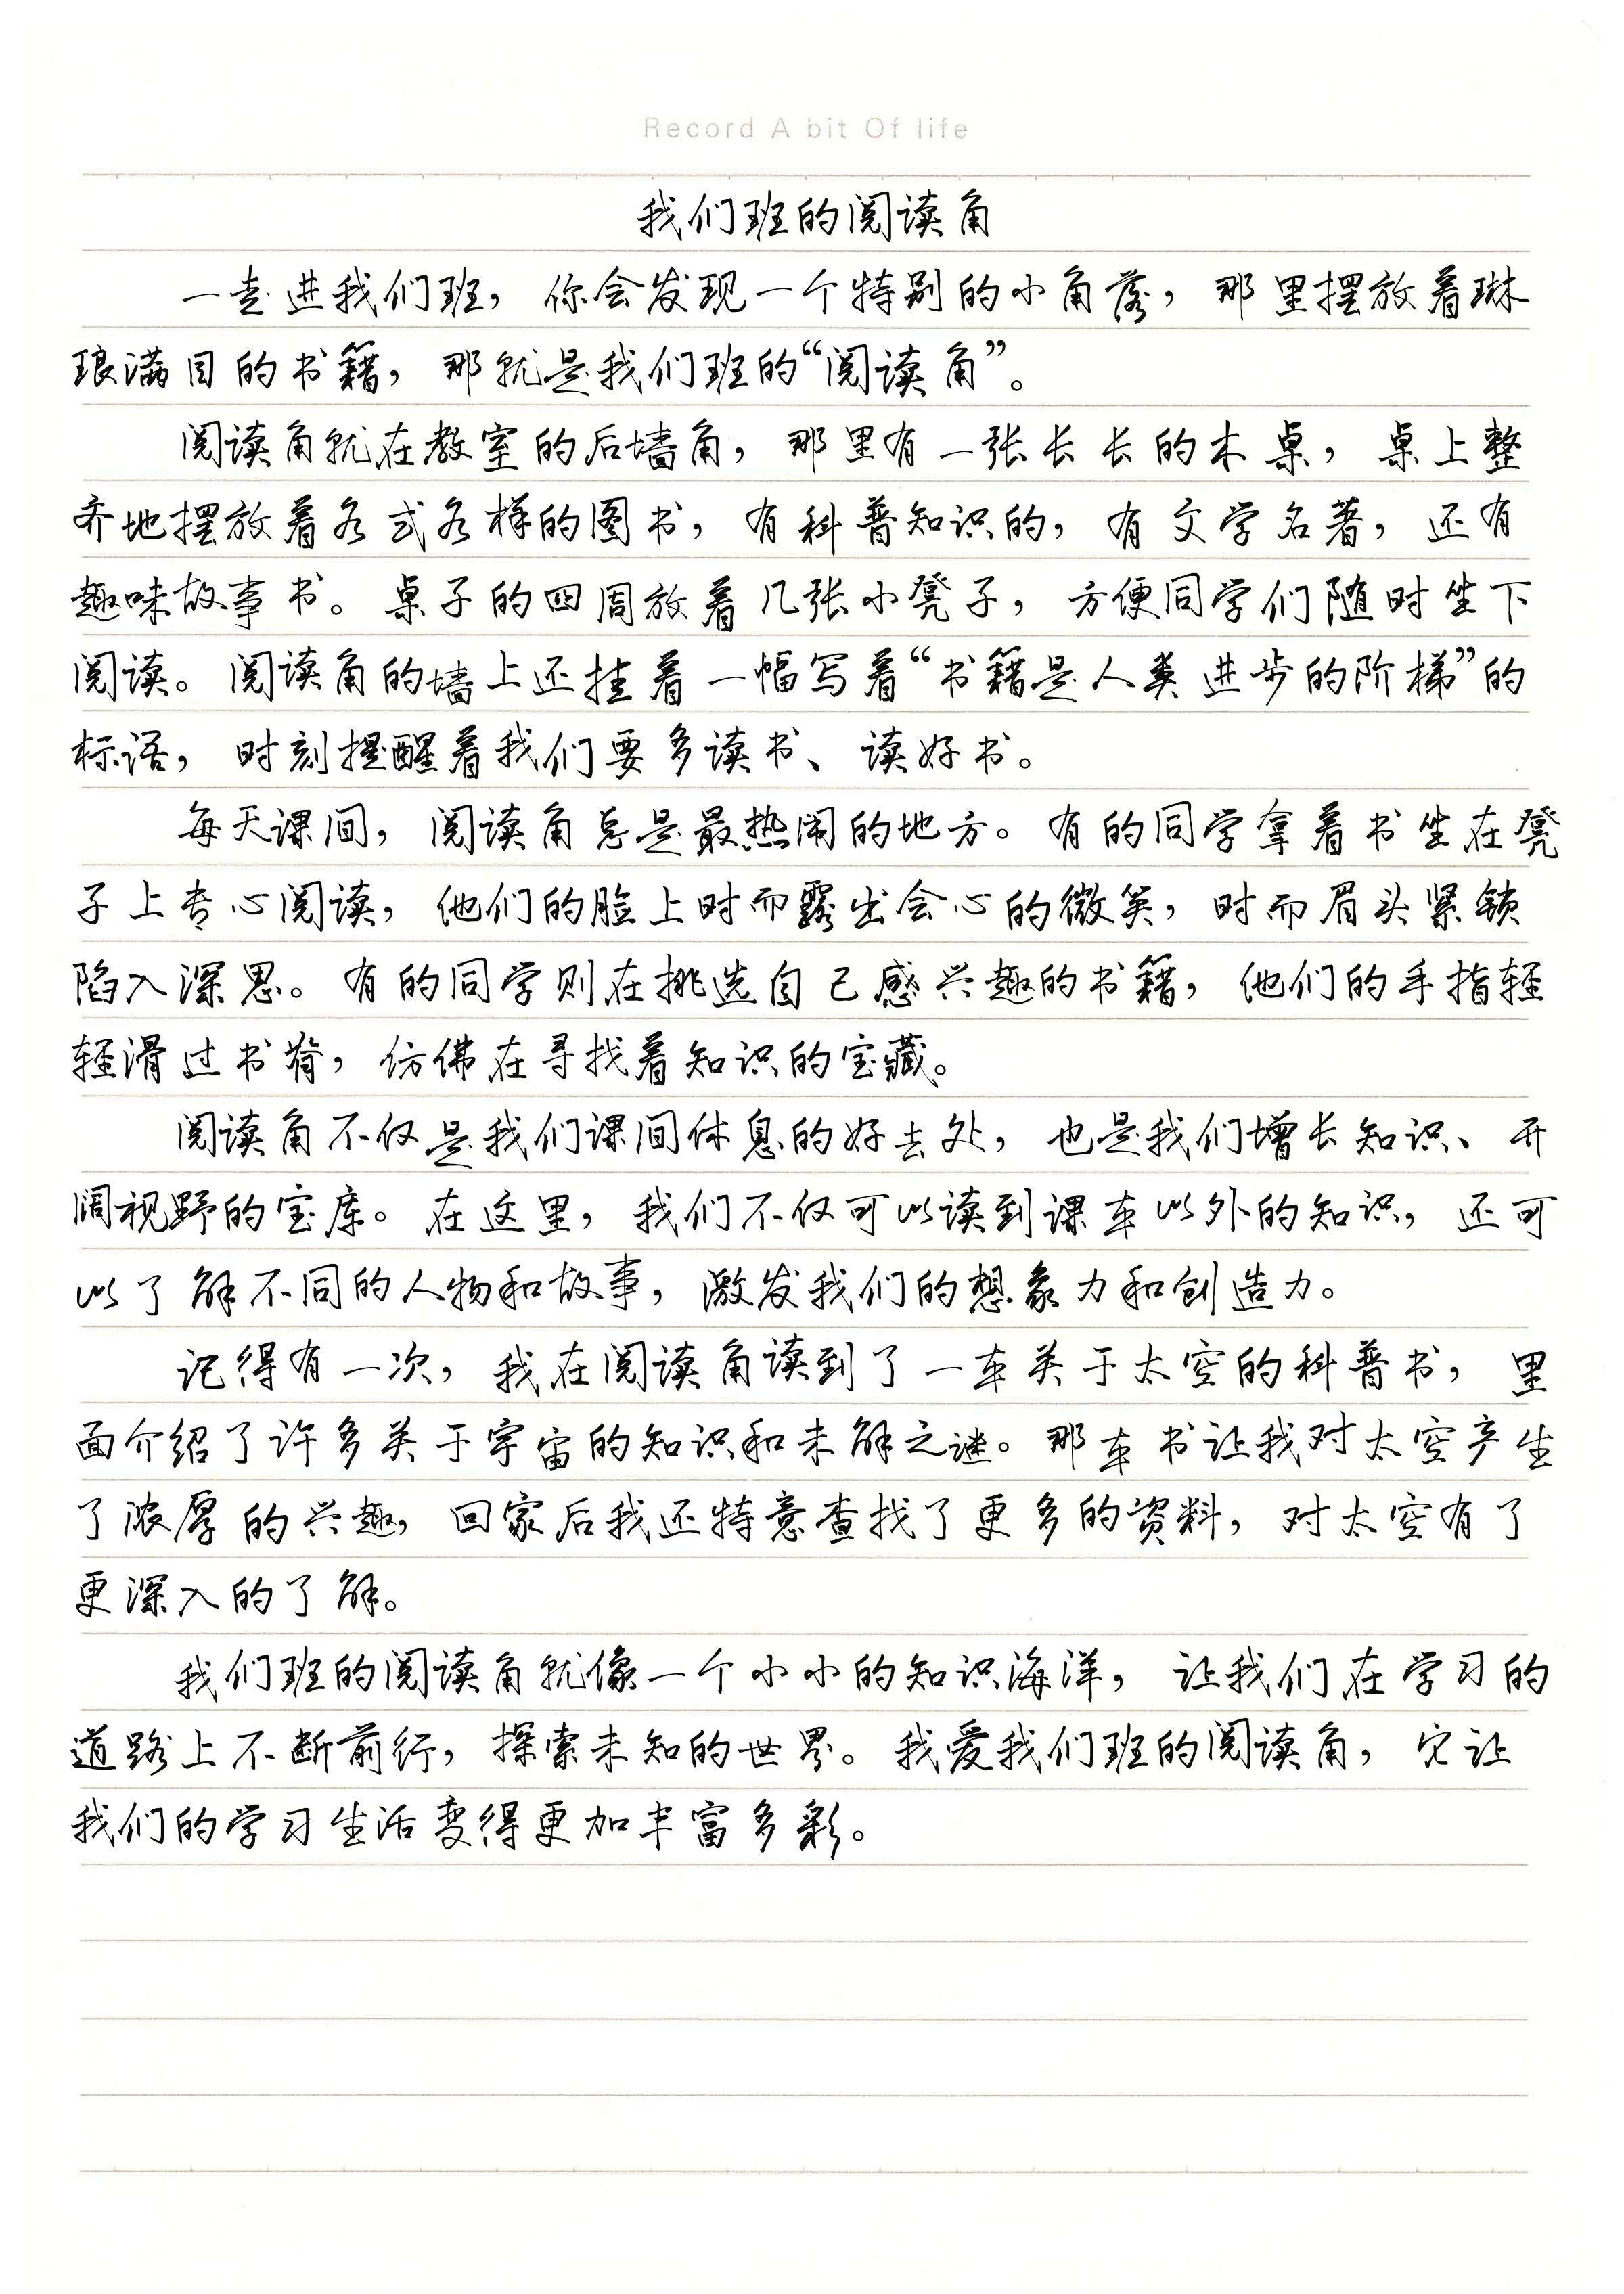 Record A bit Of life
我们班的阅读角
一走进我们班，你会发现一个特别的小角落，那里摆放着琳
琅满目的书籍，那就是我们班的“阅读角”。
阅读角就在教室的后墙角，那里有一张长长的木桌，桌上整
齐地摆放着各式各样的图书，有科普知识的，有文学名著，还有
趣味故事书。桌子的四周放着几张小凳子，方便同学们随时坐下
阅读。阅读角的墙上还挂着一幅写着“书籍是人类进步的阶梯”的
标语，时刻提醒着我们要多读书、读好书。
每天课间，阅读角总是最热闹的地方。有的同学拿着书坐在凳
子上专心阅读，他们的脸上时而露出会心的微笑，时而眉头紧锁
陷入深思。有的同学则在挑选自己感兴趣的书籍，他们的手指轻
轻滑过书脊，仿佛在寻找着知识的宝藏。
阅读角不仅是我们课间休息的好去处，也是我们增长知识、开
阔视野的宝库。在这里，我们不仅可以读到课本以外的知识，还可
以了解不同的人物和故事，激发我们的想象力和创造力。
记得有一次，我在阅读角读到了一本关于太空的科普书，里
面介绍了许多关于宇宙的知识和未解之谜。那本书让我对太空产生
了浓厚的兴趣，回家后我还特意查找了更多的资料，对太空有了
更深入的了解。
我们班的阅读角就像一个小小的知识海洋，让我们在学习的
道路上不断前行，探索未知的世界。我爱我们班的阅读角，它让
我们的学习生活变得更加丰富多彩。